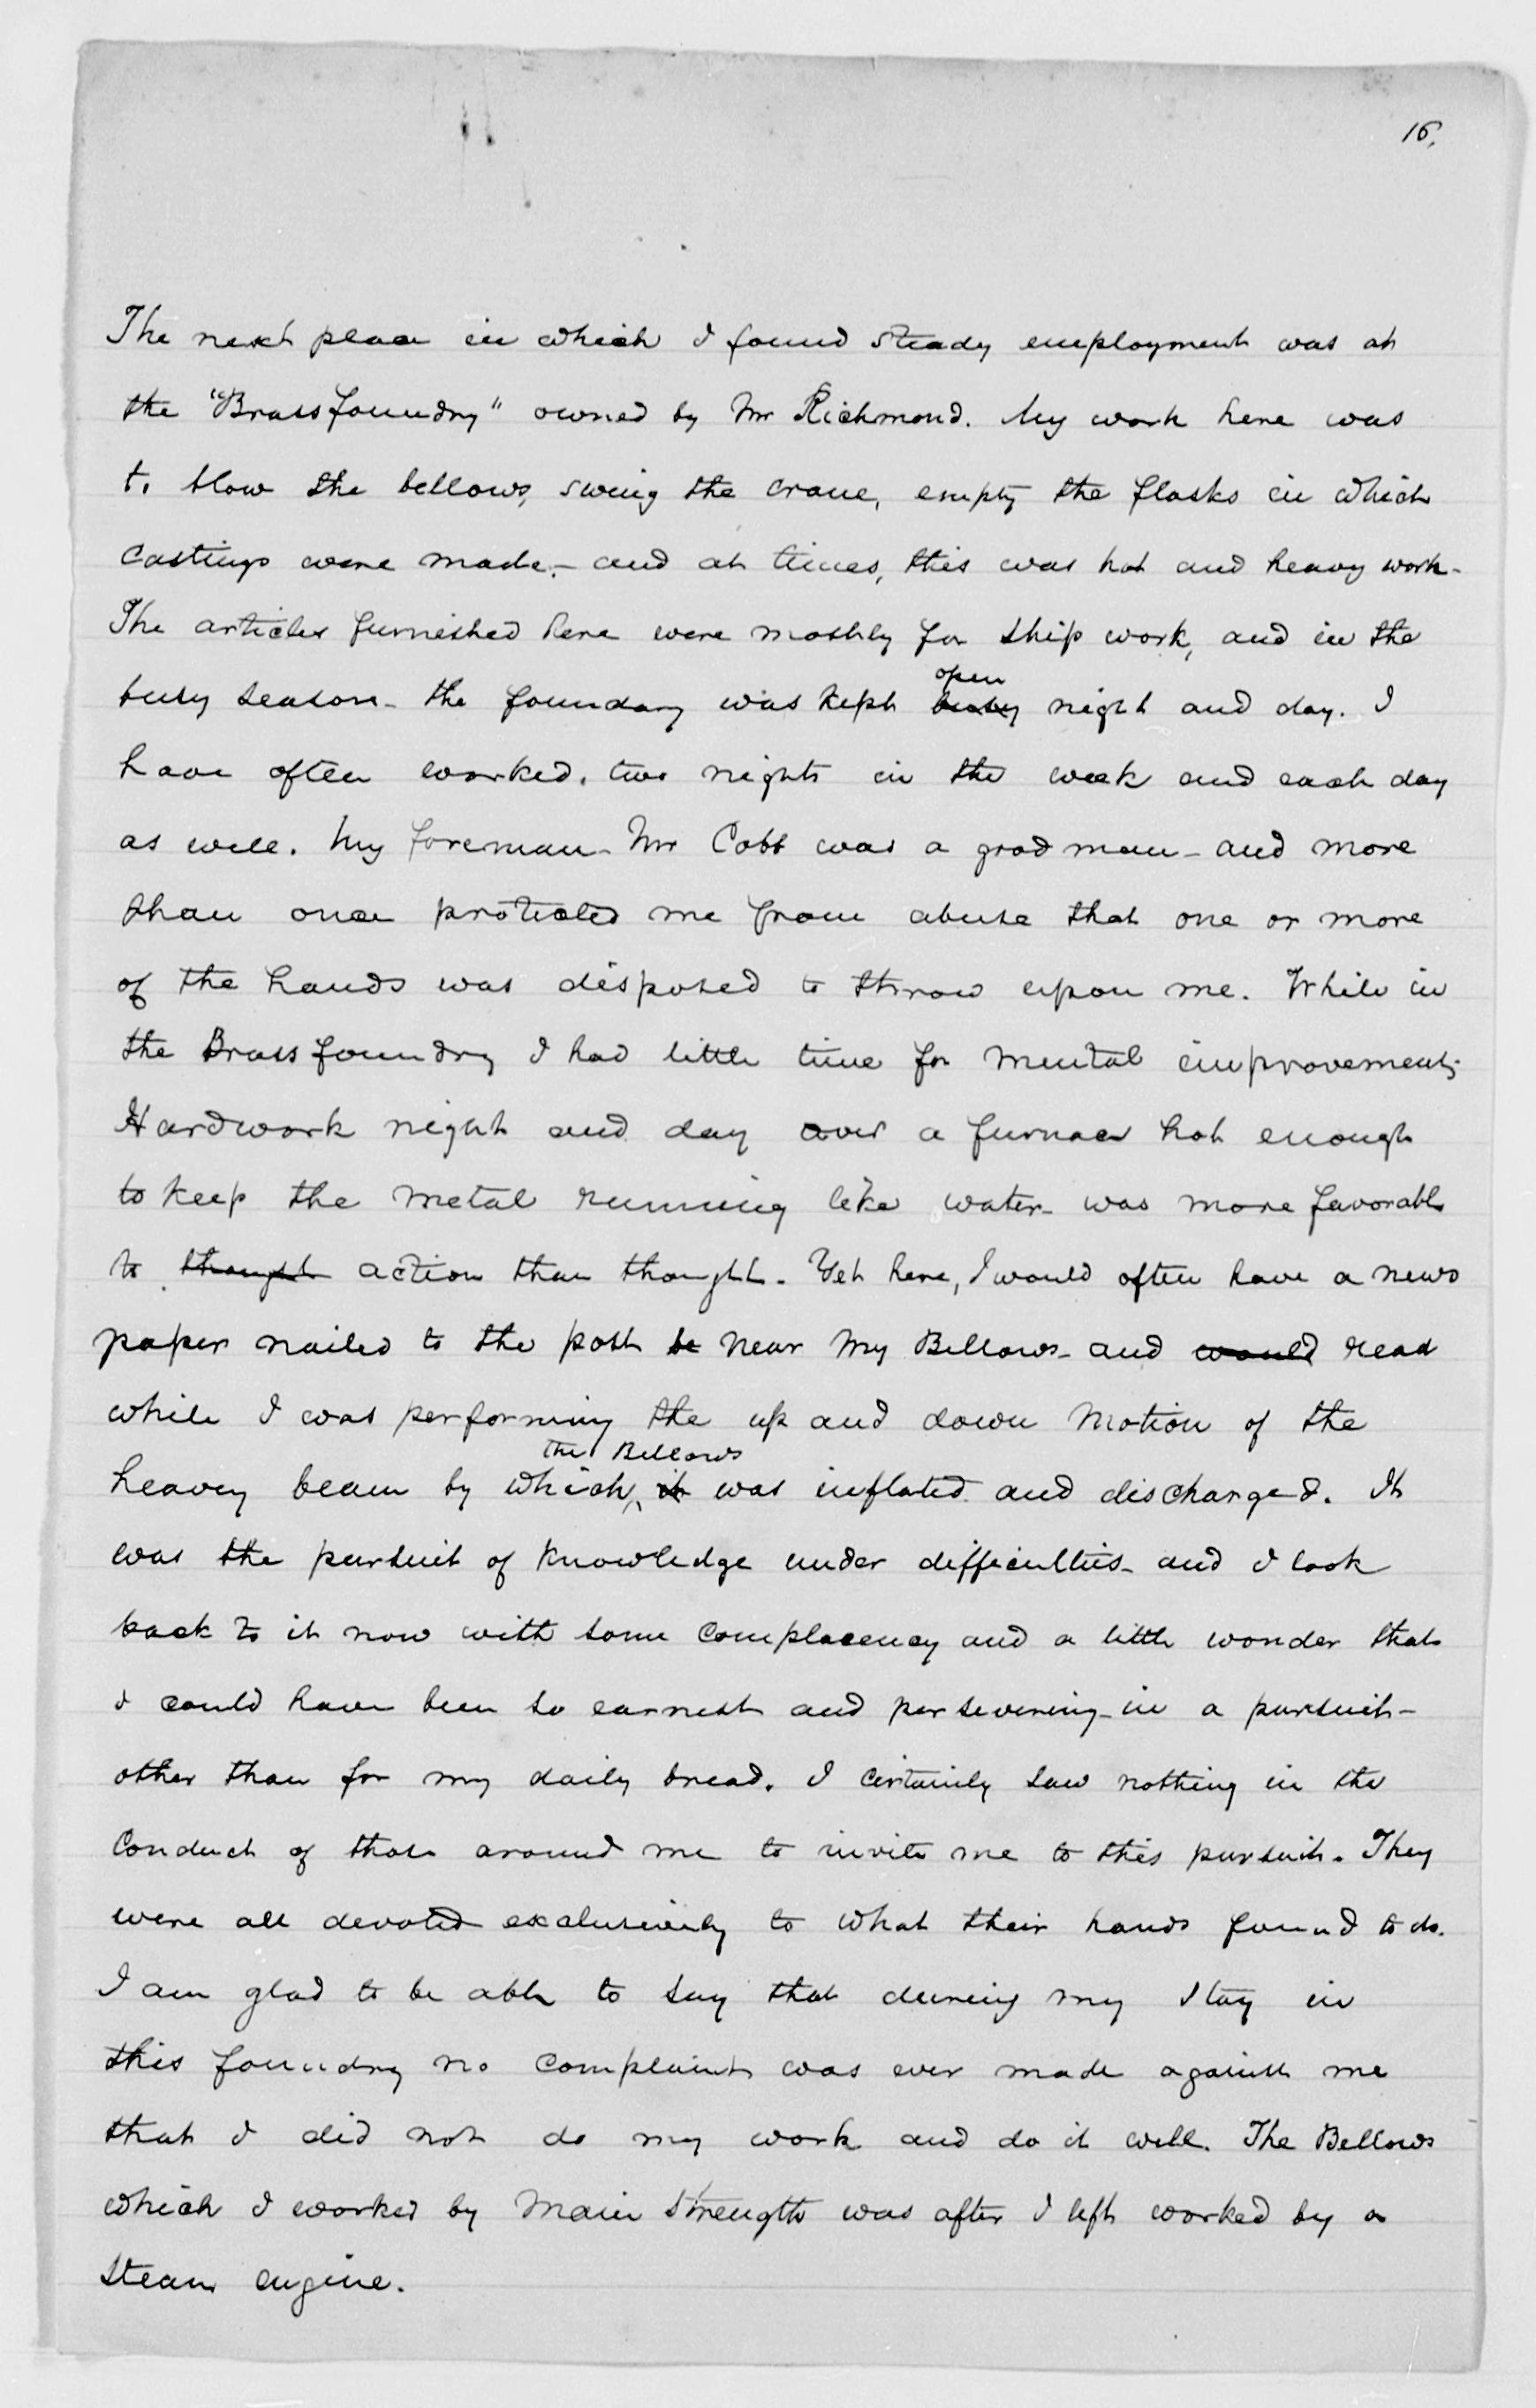 16.
The next place in which I found steady employment was at
the "Brass foundry" owned by Mr Richmond. My work here was
to blow the bellows, swing the crane, empty the flasks in which
castings were made,- and at times, this was hot and heavy work-
The articles furnished here were mostly for ship work, and in the
busy season- the foundary was kept ~~busy~~ open night and day. I
have often worked, two nights in the week and each day
as well. My foreman- Mr Cobb was a good man- and more
than once protected me from abuse that one or more
of the hands was disposed to throw upon me. While in
the Brass foundry I had little time for mental improvement;
Hardwork night and day over a furnace hot enough
to keep the metal running like water- was more favorable
to ~~thought~~ action than thought. Yet here, I would often have a news
paper nailed to the post ~~be~~ near my Bellows- and ~~would~~ read
while I was performing the up and down motion of the
heavy beam by which, ~~it~~ the Bellows was inflated and discharged. It
was the pursuit of knowledge under difficulties- and I look
back to it now with some complacency and a little wonder that
I could have been so earnest and persevering- in a pursuit-
other than for my daily bread. I certainly saw nothing in the
conduct of those around me to invite me to this pursuit. They
were all devoted exclusively to what their hands found to do.
I am glad to be able to say that during my stay in
this foundry no complaint was ever made against me
that I did not do my work and do it well. The Bellows
which I worked by main strength was after I left worked by a
steam engine.